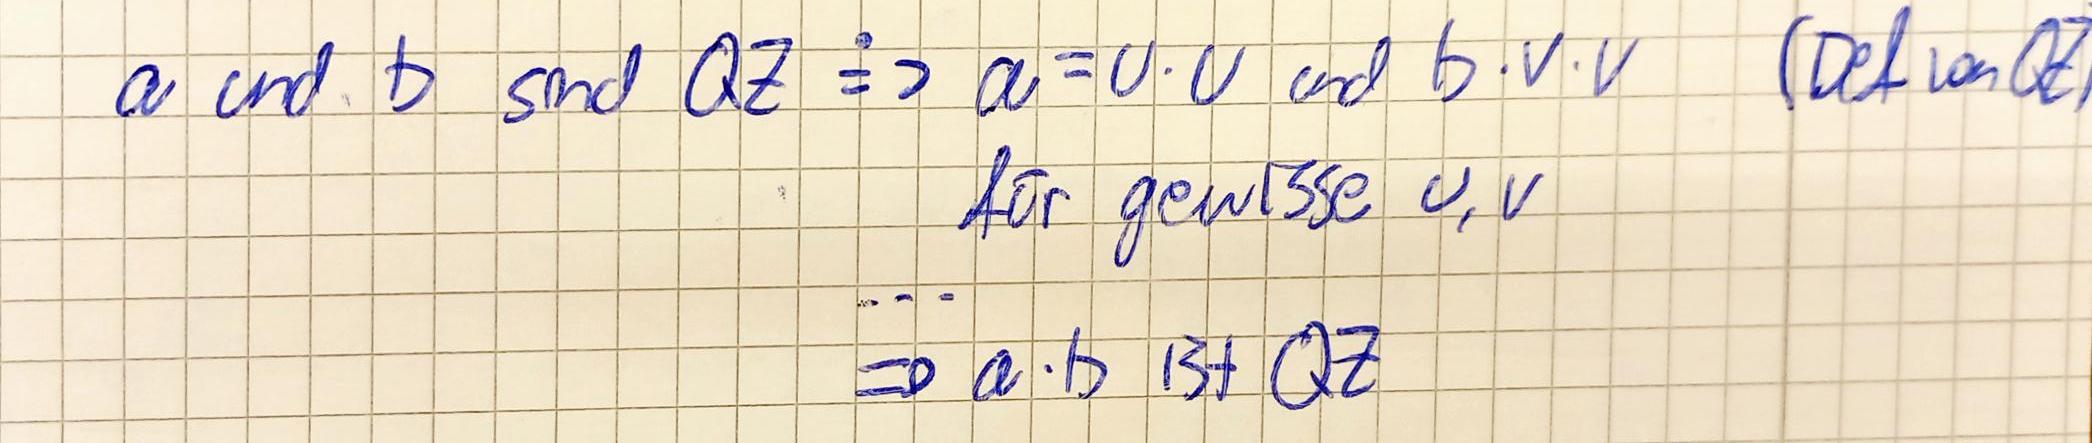 a und b sind QZ ⇒ a = u · u und b · v · v (Def von QZ)
für gewisse u, v
...
⇒ a · b ist QZ